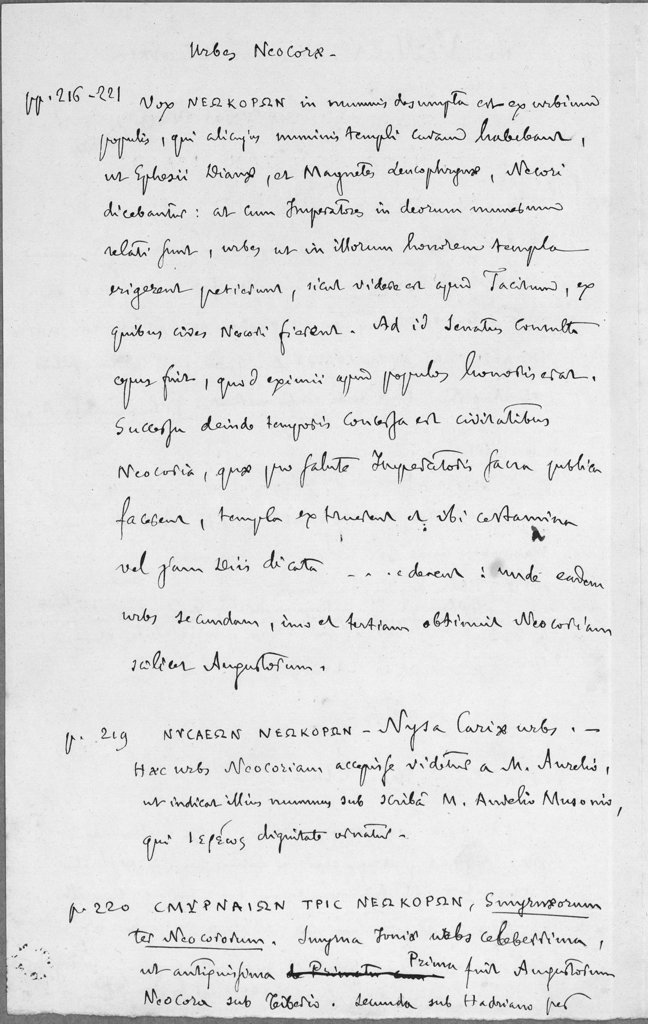 Urbes Neocoræ -
pp. 216-221 Vox ΝΕΩΚΟΡΩΝ in nummis desumpta est ex urbium
populis, qui alicujus numinis templi curam habebant,
ut Ephesii Dianæ, et Magnetes Leucophrynæ, Neocori
dicebantur: at cum Imperatores in deorum numerum
relati sunt, urbes ut in illorum honorem templa
erigerent petierunt, sicut videre est apud Tacitum, ex
quibus cives Neocori fierent. Ad id Senatus Consulto
opus fuit, quod eximii apud populos honoris erat.
Successu deinde temporis concessa est civitatibus
Neocoria, quæ pro salute Imperatoris sacra publica
facerent, templa extruerent et ibi certamina
vel jam Diis dicata ....ederent : unde eadem
urbs secundam, imo et tertiam obtinuit Neocoriam
scilicet Augustorum.
p. 219 ΝΥCΑΕΩΝ ΝΕΩΚΟΡΩΝ - Nysa Cariæ urbs. -
Hæc urbs Neocoriam accepisse videtur a M. Aurelio,
ut indicat illius nummus sub scribâ M. Aurelio Musonio,
qui Ιερέως dignitate ornatur -
p. 220 CΜΥΡΝΑΙΩΝ ΤΡΙC ΝΕΩΚΟΡΩΝ, Smyrnæorum
ter Neocororum. Smyrna Ioniæ urbs celeberrima,
ut antiquissima Prima fuit Augustorum
Neocora sub Tiberio. Secunda sub Hadriano per